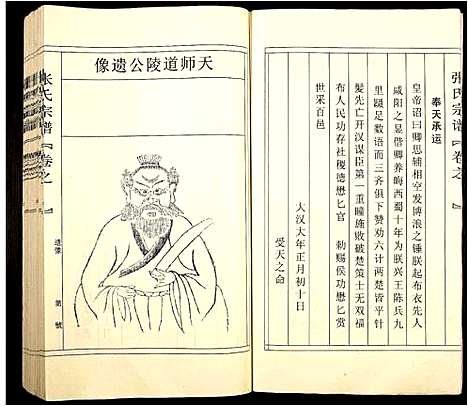 张氏宗谱『卷之一』
奉天承运
皇帝诏曰卿思辅相空发博浪之锤朕起布衣先人
咸阳之晃偕卿养晦西蜀十年为朕兴王陈兵九
里蹑足数语而三齐俱下赞劝六计两楚皆平针
髪先亡开汉谋臣第一重瞳施败破楚策士无双福
布人民功存社稷德懋匕官 勅赐侯功懋匕赏
世采百邑
大汉大年正月初十日
受天之命
天师道陵公遗像
张氏宗谱『卷之一』
遗像
第 號